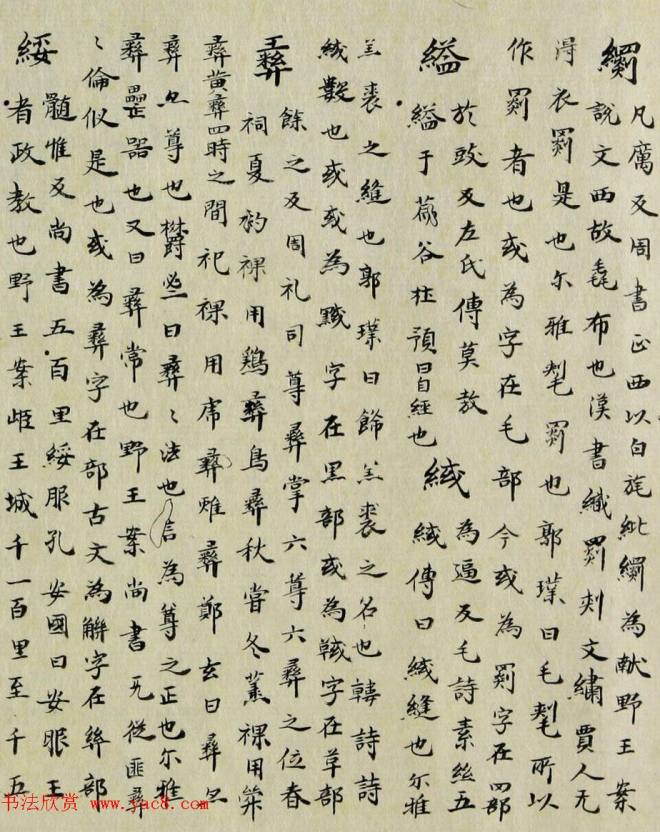 繝 凡厲反周書正西以白旄紕繝為献野王案
說文西故毳布也漢書織罽刾文繡賈人无
得衣罽是也尒雅氂罽也郭璞曰毛氂所以
作罽者也或為字在毛部今或為罽字在四部
縊 於豉反左氏傳莫敖縊于荒谷杜預曰自經也 緎 為逼反毛詩素絲五緎傳曰緎縫也尒雅
羔裘之縫也郭璞曰飾羔裘之名也韓詩詩
緎數也或或為黬字在黑部或為䩹字在草部
彝 餘之反周礼司尊彝掌六尊六彝之位春
祠夏礿祼用鷄彝鳥彝秋甞冬蒸祼用斚
彝黄彝四時之間祀祼用虎彝蜼彝鄭玄曰彝
彝 尊也欝必一曰彝〻法也言為尊之正也尒雅
彝罍器也又曰彝常也野王案尚書无從匪彝
〻倫似是也或為彝字在部古文為字在絲部
綏 髄惟反尚書五百里綏服孔安國曰安服王
者政教也野王案歫王城千一百里至千五
书法欣赏 www.yac8.com